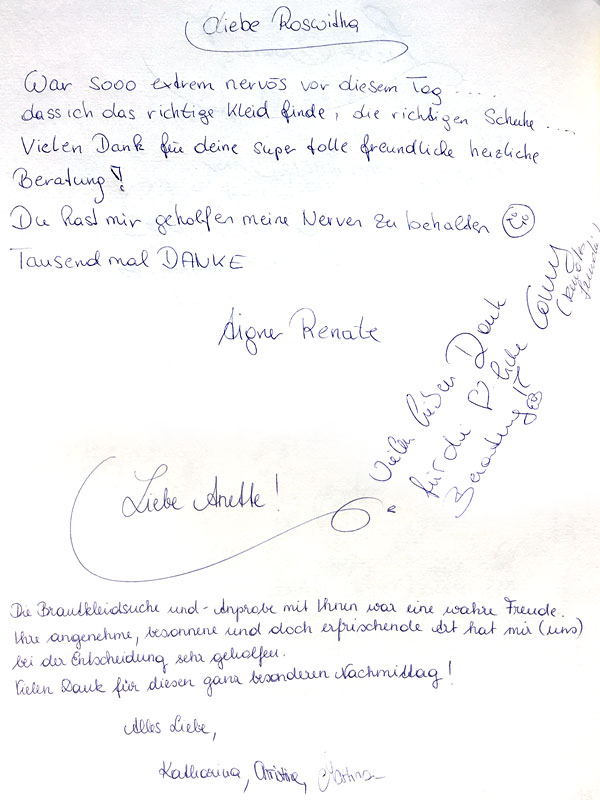 Liebe Roswitha
War sooo extrem nervös vor diesem Tag ....
dass ich das richtige Kleid finde, die richtigen Schuhe ....
Vielen Dank für deine super tolle freundliche herzliche
Beratung!
Du hast mir geholfen meine Nerven zu behalten ☺
Tausend mal DANKE
Aigner Renate
Vielen lieben Dank
für die ♡liche
Beratung!! ☺
Conny
Liebe Anette!
Die Brautkleidsuche und -Anprobe mit Ihnen war eine wahre Freude.
Ihre angenehme, besonnene und doch erfrischende Art hat mir (uns)
bei der Entscheidung sehr geholfen.
Vielen Dank für diesen ganz besonderen Nachmittag!
Alles Liebe,
Katharina, Christine, Martina